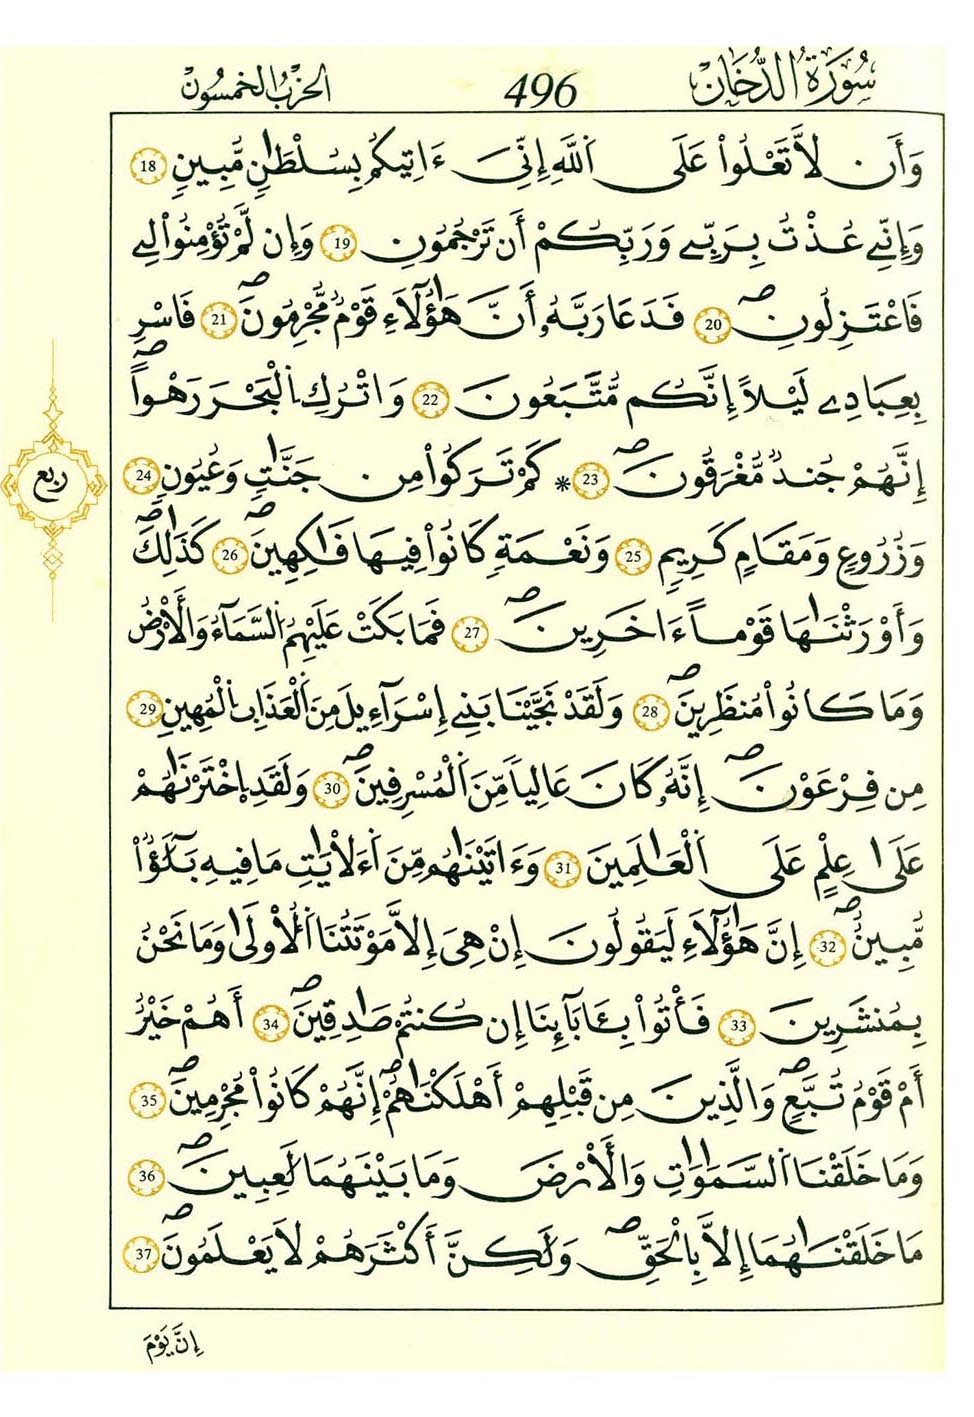 سُورَةُ الدُّخَانِ 496 الحزب الخمسون
وَأَن لَّا تَعْلُوا۟ عَلَى اَ۬للَّهِ إِنِّىَ ءَاتِيكُم بِسُلْطَٰنٍ مُّبِينٍ 18
وَإِنِّے عُذْتُ بِرَبِّے وَرَبِّكُمْ أَن تَرْجُمُونِ 19 وَإِن لَّمْ تُؤْمِنُوا۟ لِے
فَاعْتَزِلُونِ صۖ 20 فَدَعَا رَبَّهُۥ أَنَّ هَٰٓؤُلَآءِ قَوْمٌ مُّجْرِمُونَ صۖ 21 فَاسْرِ
بِعِبَادِے لَيْلاً إِنَّكُم مُّتَّبَعُونَ 22 وَاتْرُكِ اِ۬لْبَحْرَ رَهْواً صۖ
إِنَّهُمْ جُندٌ مُّغْرَقُونَ صۖ 23 * كَمْ تَرَكُوا۟ مِن جَنَّٰتٍ وَعُيُونٍ 24
وَزُرُوعٍ وَمَقَامٍ كَرِيمٍ 25 وَنَعْمَةٍ كَانُوا۟ فِيهَا فَٰكِهِينَ صۖ 26 كَذَٰلِكَ صۖ
وَأَوْرَثْنَٰهَا قَوْماً ءَاخَرِينَ صۖ 27 فَمَا بَكَتْ عَلَيْهِمُ اُ۬لسَّمَآءُ وَالْأَرْضُ
وَمَا كَانُوا۟ مُنظَرِينَ صۖ 28 وَلَقَدْ نَجَّيْنَا بَنِے إِسْرَآءِيلَ مِنَ اَ۬لْعَذَابِ اِ۬لْمُهِينِ 29
مِن فِرْعَوْنَ صۖ إِنَّهُۥ كَانَ عَالِياً مِّنَ اَ۬لْمُسْرِفِينَ صۖ 30 وَلَقَدِ اِ۪خْتَرْنَٰهُمْ
عَلَىٰ عِلْمٍ عَلَى اَ۬لْعَٰلَمِينَ 31 وَءَاتَيْنَٰهُم مِّنَ اَ۬ءَلْأيَٰتِ مَا فِيهِ بَلَٰٓؤٌا۟
مُّبِينٌ صۖ 32 إِنَّ هَٰٓؤُلَآءِ لَيَقُولُونَ إِنْ هِىَ إِلَّا مَوْتَتُنَا اَ۬لْأُولَىٰ وَمَا نَحْنُ
بِمُنشَرِينَ 33 فَأْتُوا۟ بِـَٔابَآئِنَا إِن كُنتُمْ صَٰدِقِينَ صۖ 34 أَهُمْ خَيْرٌ
أَمْ قَوْمُ تُبَّعٍ صۖ وَالَّذِينَ مِن قَبْلِهِمْ أَهْلَكْنَٰهُمْ صۖ إِنَّهُمْ كَانُوا۟ مُجْرِمِينَ صۖ 35
وَمَا خَلَقْنَا اَ۬لسَّمَٰوَٰتِ وَالْأَرْضَ وَمَا بَيْنَهُمَا لَٰعِبِينَ صۖ 36
مَا خَلَقْنَٰهُمَا إِلَّا بِالْحَقِّ صۖ وَلَٰكِنَّ أَكْثَرَهُمْ لَا يَعْلَمُونَ صۖ 37
ربع
إِنَّ يَوْمَ